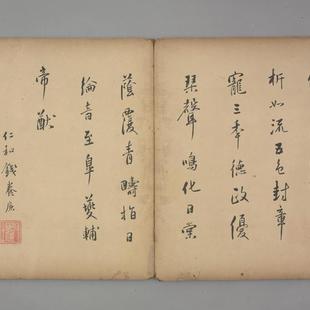 析如流五色封章
寵三年德政優
琴聲鳴化日棠
蔭覆青疇指日
綸音至皋夔輔
帝猷
仁和錢養